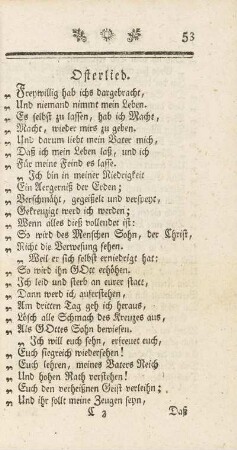 53
Osterlied.
„ Freywillig hab ichs dargebracht,
„ Und niemand nimmt mein Leben.
„ Es selbst zu lassen, hab ich Macht,
„ Macht, wieder mirs zu geben.
„ Und darum liebt mein Vater mich,
„ Daß ich mein Leben laß, und ich
„ Für meine Feind es lasse.
„ Ich bin in meiner Niedrigkeit
„ Ein Aergerniß der Erden;
„ Verschmäht, gegeißelt und verspeyt,
„ Gekreuzigt werd ich werden;
„ Wenn alles dieß vollendet ist:
„ So wird des Menschen Sohn, der Christ,
„ Nicht die Verwesung sehen.
„ Weil er sich selbst erniedrigt hat:
„ So wird ihn GOtt erhöhen.
„ Ich leid und sterb an eurer statt,
„ Dann werd ich, auferstehen,
„ Am dritten Tag geh ich heraus,
„ Lösch alle Schmach des Kreuzes aus,
„ Als GOttes Sohn bewiesen.
„ Ich will euch sehn, erfreuet euch,
„ Euch siegreich wiedersehen!
„ Euch lehren, meines Vaters Reich
„ Und hohen Rath verstehen!
„ Euch den verheißnen Geist verleihn;
„ Und ihr sollt meine Zeugen seyn,
C 3 Daß